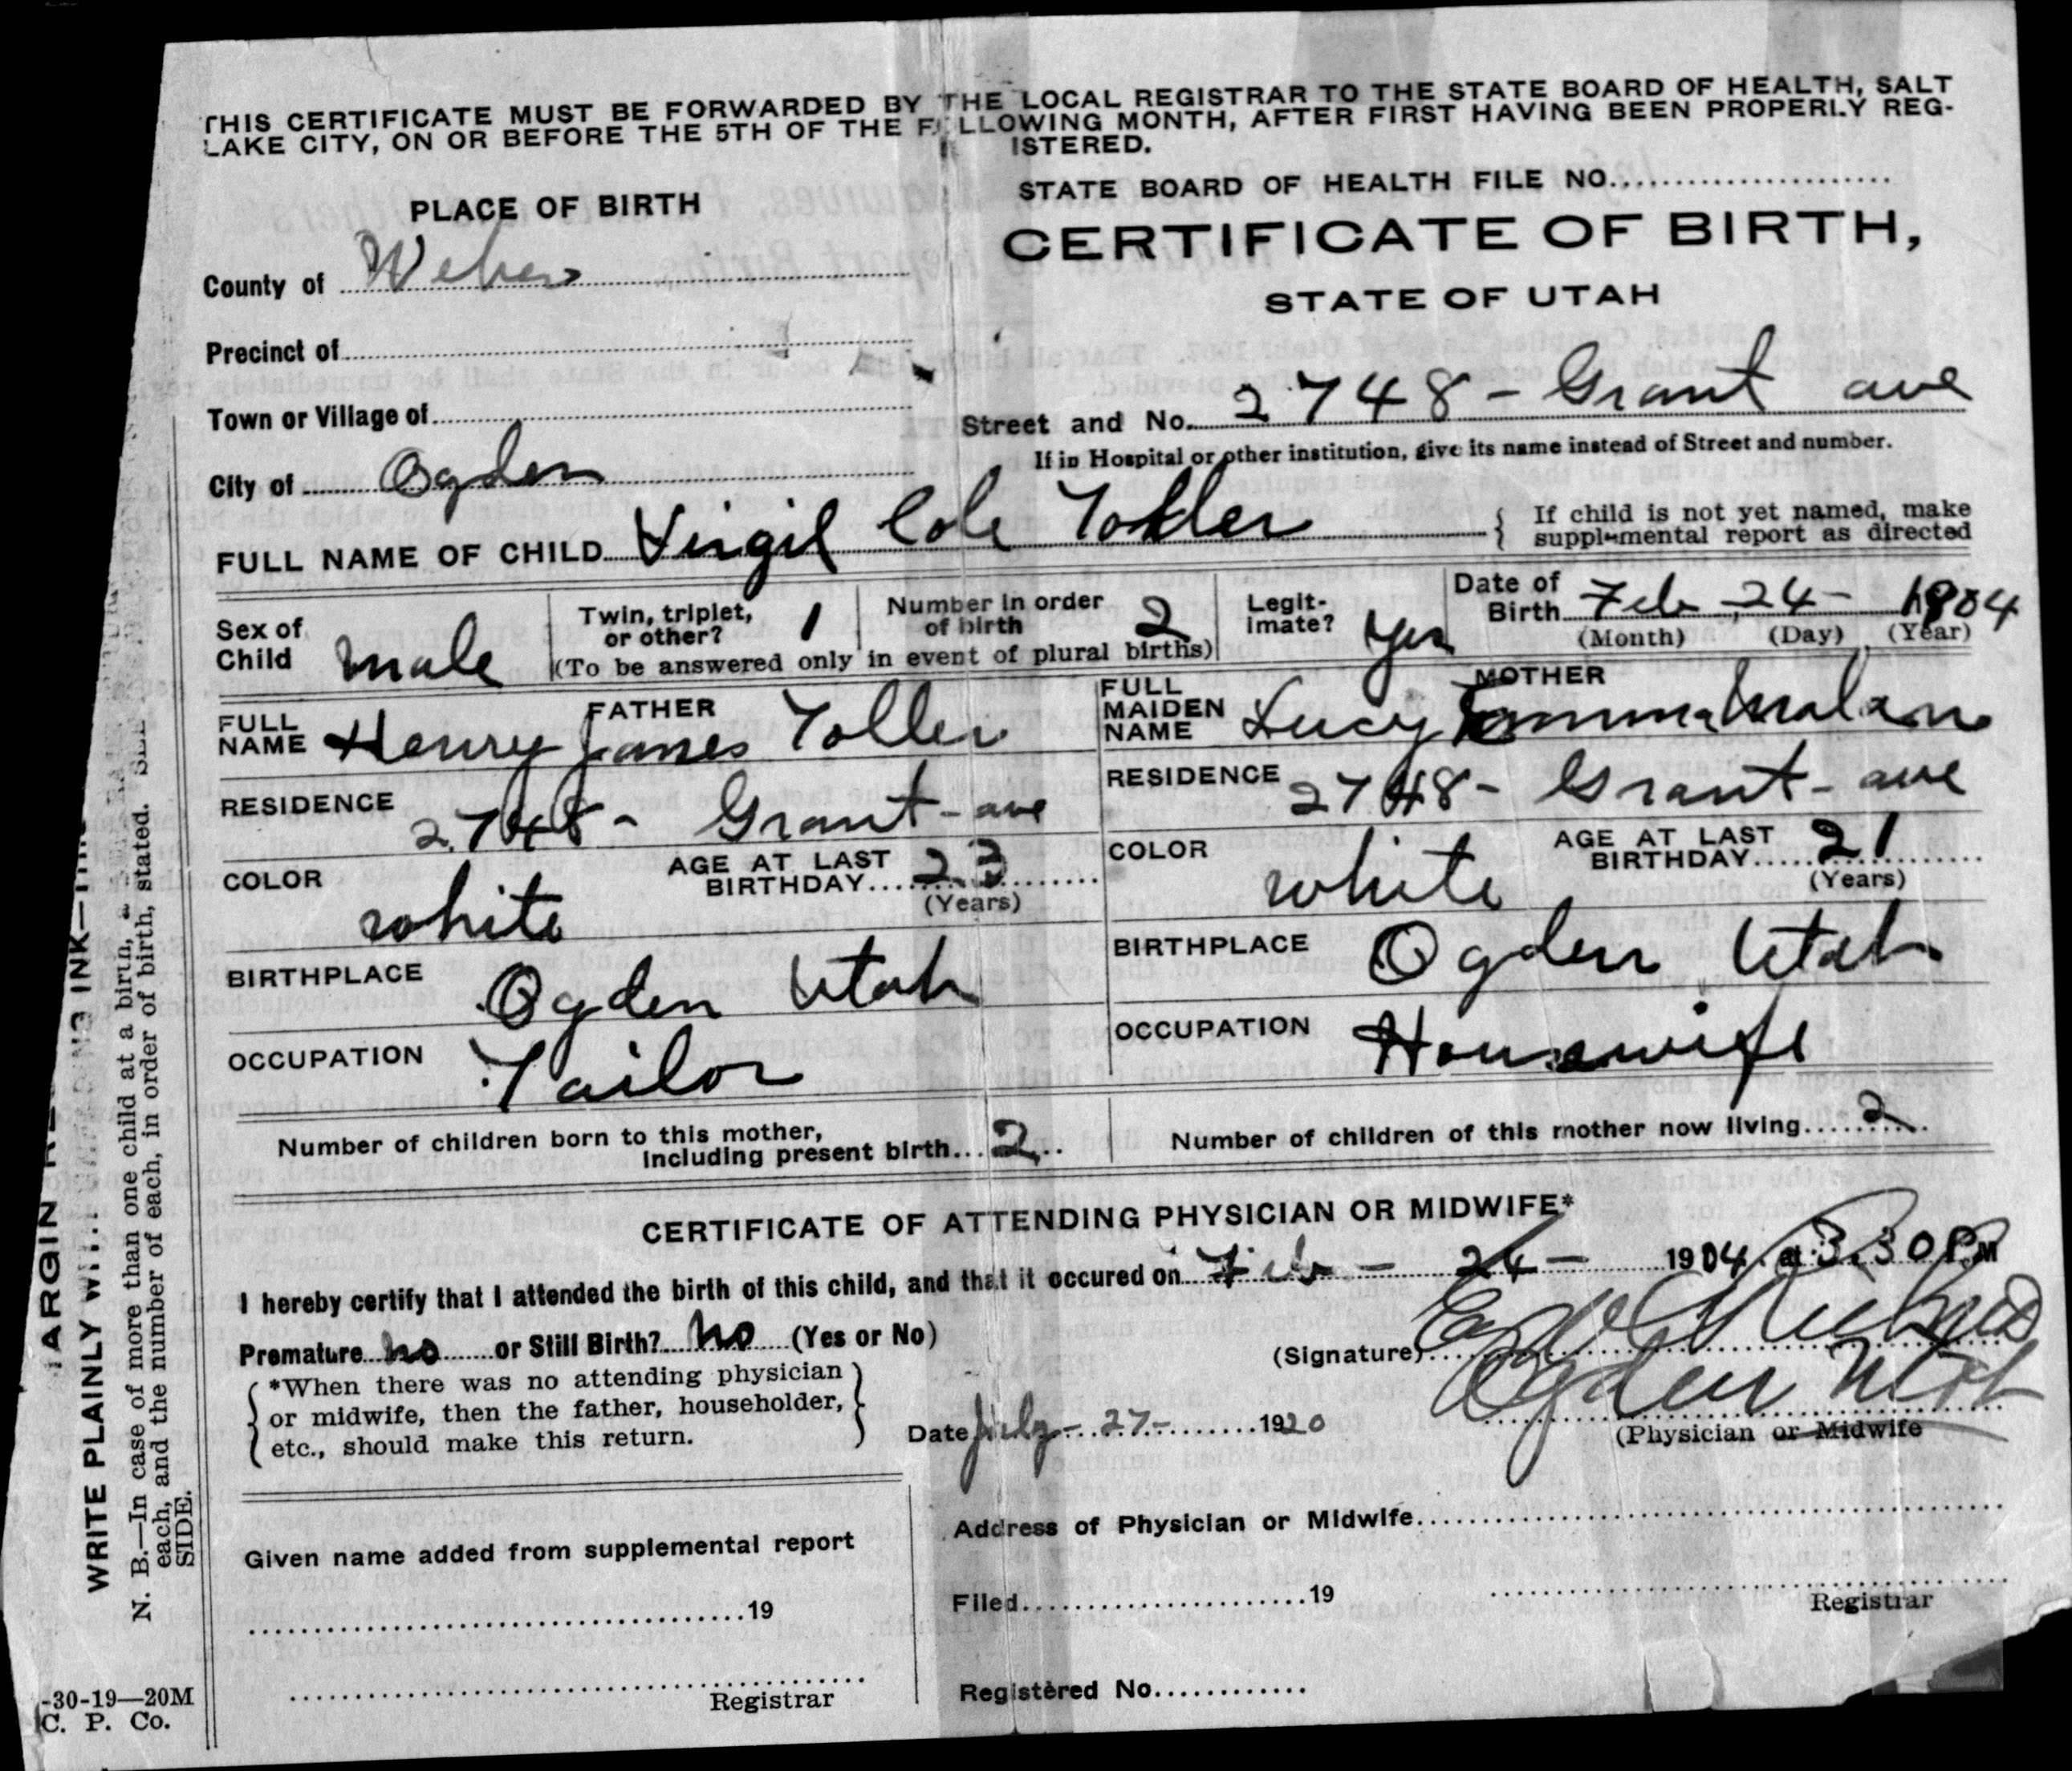 THIS CERTIFICATE MUST BE FORWARDED BY THE LOCAL REGISTRAR TO THE STATE BOARD OF HEALTH, SALT
LAKE CITY, ON OR BEFORE THE 5TH OF THE F LLOWING MONTH, AFTER FIRST HAVING BEEN PROPERLY REG-
ISTERED.
STATE BOARD OF HEALTH FILE NO.
PLACE OF BIRTH
CERTIFICATE OF BIRTH,
STATE OF UTAH
County of Weber
Precinct of
Town or Village of
Street and No. 2748 - Grant ave
If in Hospital or other institution, give its name instead of Street and number.
City of Ogden
FULL NAME OF CHILD Virgil Cole Toller
If child is not yet named, make
supplemental report as directed
Sex of Child male
Twin, triplet, or other? 1
Number in order of birth 2
(To be answered only in event of plural births)
Legit-imate? yes
Date of Birth Feb 24 - 1904
(Month) (Day) (Year)
FATHER
FULL NAME Henry James Toller
MOTHER
FULL MAIDEN NAME Lucy Emma Malan
RESIDENCE 2748 - Grant - ave
RESIDENCE 2748 - Grant - ave
COLOR white
AGE AT LAST BIRTHDAY 23
(Years)
COLOR white
AGE AT LAST BIRTHDAY 21
(Years)
BIRTHPLACE Ogden Utah
BIRTHPLACE Ogden Utah
OCCUPATION Tailor
OCCUPATION Housewife
Number of children born to this mother,
including present birth 2
Number of children of this mother now living 2
CERTIFICATE OF ATTENDING PHYSICIAN OR MIDWIFE*
I hereby certify that I attended the birth of this child, and that it occured on Feb - 24 - 1904 at 3.30 P.M
Premature no or Still Birth? no (Yes or No)
(Signature)
Ogden Utah
*When there was no attending physician
or midwife, then the father, householder,
etc., should make this return.
Date July - 27 - 1920
(Physician or Midwife
Given name added from supplemental report
19
Registrar
Address of Physician or Midwife
Filed 19
Registrar
Registered No.
WRITE PLAINLY
INK
N. B.—In case of more than one child at a birth, a
each, and the number of each, in order of birth, stated.
SIDE.
-30-19—20M
C. P. Co.